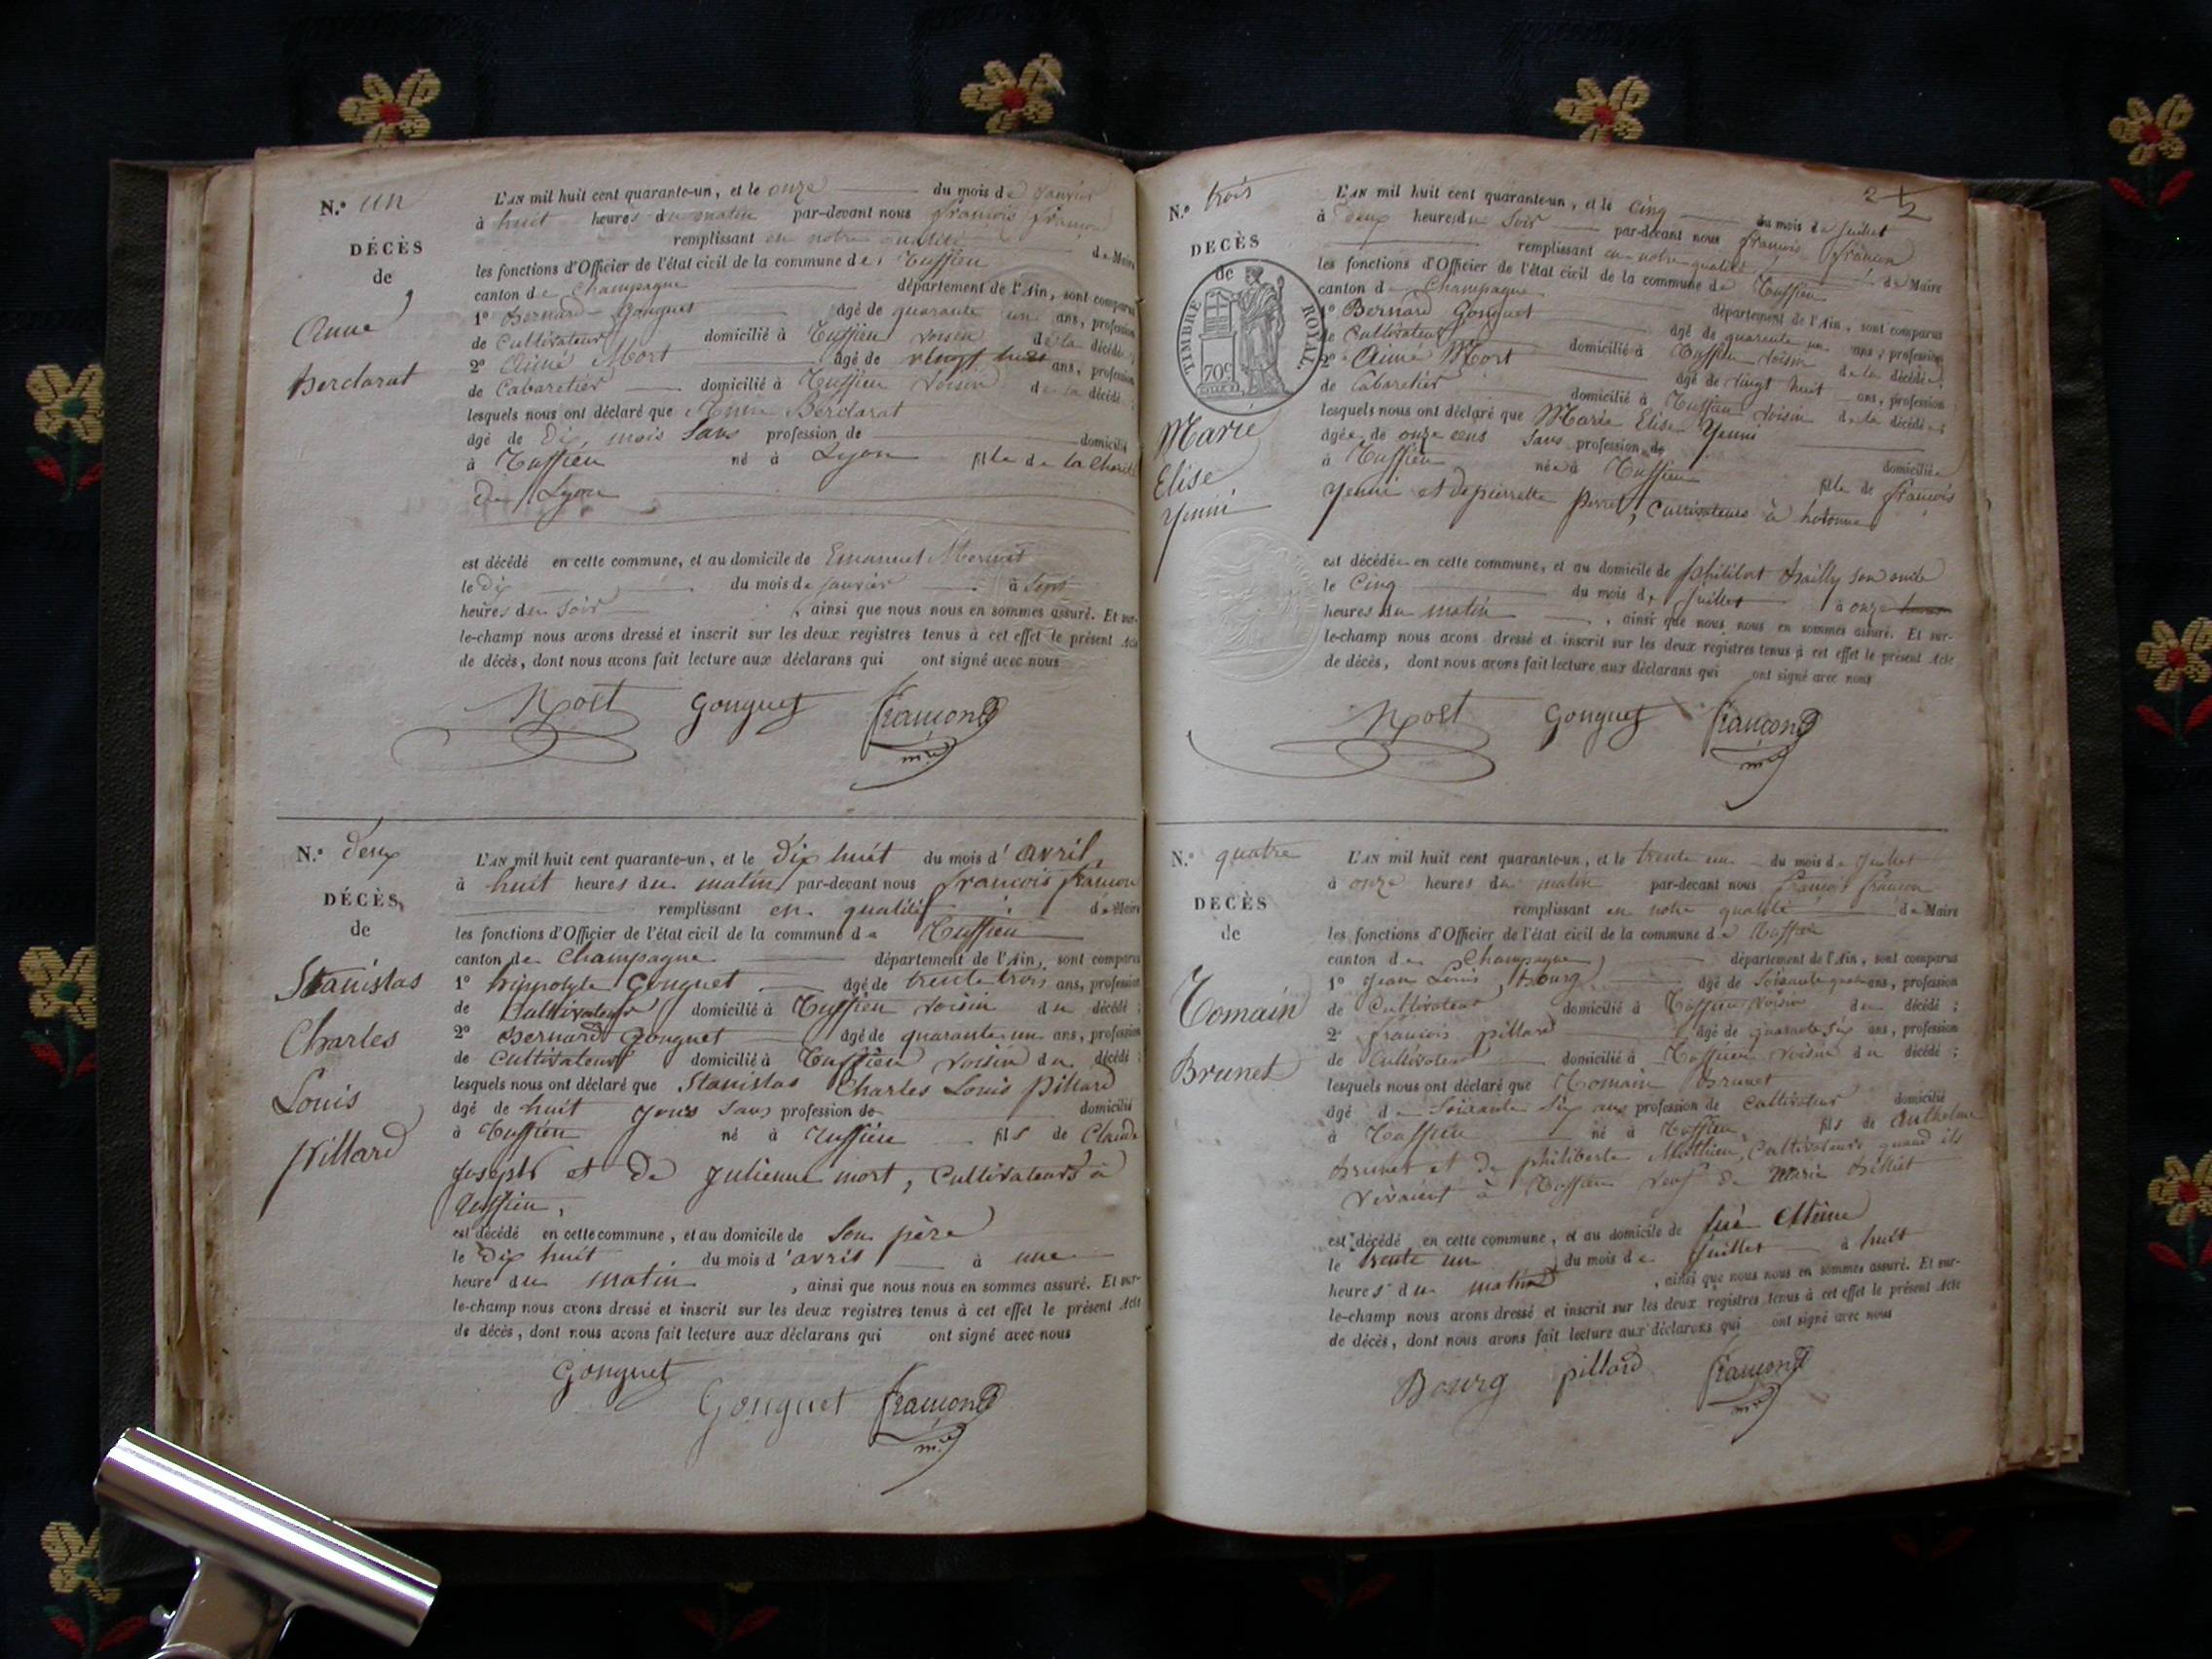 N.° un
DÉCÈS
de
Anne
Berclarat
L'AN mil huit cent quarante-un, et le onze du mois de janvier
à huit heures du matin par-devant nous françois françon
remplissant en notre qualité de Maire
les fonctions d'Officier de l'état civil de la commune de Ruffieu
canton de Champagne département de l'Ain, sont comparus
1° Bernard Gonguet âgé de quarante un ans, profession
de Cultivateur domicilié à Ruffieu voisin de la décédé ;
2° Aimé Mort âgé de vingt huit ans, profession
de Cabaretier domicilié à Ruffieu voisin de la décédé ;
lesquels nous ont déclaré que Anne Berclarat
âgé de dix mois Sans profession de domicilié
à Ruffieu né à Lyon fille de la Charité
De Lyon
est décédé en cette commune, et au domicile de Emanuel
le dix du mois de janvier à Sept
heures du Soir , ainsi que nous nous en sommes assuré. Et sur-
le-champ nous avons dressé et inscrit sur les deux registres tenus à cet effet le présent Acte
de décès, dont nous avons fait lecture aux déclarans qui ont signé avec nous
Mort Gonguet françon
m.re
N.° deux
DÉCÈS
de
Stanislas
Charles
Louis
Pillard
L'AN mil huit cent quarante-un, et le dix huit du mois d' avril
à huit heures du matin par-devant nous françois françon
remplissant en qualité de Maire
les fonctions d'Officier de l'état civil de la commune de Ruffieu
canton de Champagne département de l'Ain, sont comparus
1° hippolyte Gonguet âgé de trente trois ans, profession
de Cultivateur domicilié à Ruffieu voisin du décédé ;
2° Bernard Gonguet âgé de quarante un ans, profession
de Cultivateur domicilié à Ruffieu voisin du décédé ;
lesquels nous ont déclaré que Stanislas Charles Louis Pillard
âgé de huit jours Sans profession de domicilié
à Ruffieu né à Ruffieu fils de Claude
joseph et de Julienne mort, Cultivateurs à
Ruffieu,
est décédé en cette commune, et au domicile de Son père
le dix huit du mois d'avril à une
heure du matin , ainsi que nous nous en sommes assuré. Et sur-
le-champ nous avons dressé et inscrit sur les deux registres tenus à cet effet le présent Acte
de décès, dont nous avons fait lecture aux déclarans qui ont signé avec nous
Gonguet
Gonguet françon
m.re
2
N.° trois
DECÈS
de
TIMBRE ROYAL
Marie
Elise
Yenni
L'AN mil huit cent quarante-un, et le Cinq du mois de Juillet
à deux heures du Soir par-devant nous françois françon
remplissant en notre qualité de Maire
les fonctions d'Officier de l'état civil de la commune de Ruffieu
canton de Champagne département de l'Ain, sont comparus
1° Bernard Gonguet âgé de quarante un ans, profession
de Cultivateur domicilié à Ruffieu voisin de la décédée ;
2° Aimé Mort âgé de vingt huit ans, profession
de Cabaretier domicilié à Ruffieu voisin de la décédée ;
lesquels nous ont déclaré que Marie Elise Yenni
âgée de onze ans Sans profession de domiciliée
à Ruffieu née à Ruffieu fille de françois
Yenni et de pierrette Perret, Cultivateurs à hotonne
est décédée en cette commune, et au domicile de philibert Bailly son oncle
le Cinq du mois de Juillet à onze
heures du matin , ainsi que nous nous en sommes assuré. Et sur-
le-champ nous avons dressé et inscrit sur les deux registres tenus à cet effet le présent Acte
de décès, dont nous avons fait lecture aux déclarans qui ont signé avec nous
Mort Gonguet françon
m.re
N.° quatre
DECÈS
de
Romain
Brunet
L'AN mil huit cent quarante-un, et le trente un du mois de Juillet
à onze heures du matin par-devant nous françois françon
remplissant en notre qualité de Maire
les fonctions d'Officier de l'état civil de la commune de Ruffieu
canton de Champagne département de l'Ain, sont comparus
1° Jean Louis Bourg âgé de Soixante quatre ans, profession
de Cultivateur domicilié à Ruffieu voisin du décédé ;
2° francois pillard âgé de quarante six ans, profession
de Cultivateur domicilié à Ruffieu voisin du décédé ;
lesquels nous ont déclaré que Romain Brunet
âgé de Soixante six ans profession de Cultivateur domicilié
à Ruffieu né à Ruffieu fils de Anthelme
Brunet et de philiberte Mathieu, Cultivateurs quand ils
vivaient à Ruffieu veuf de Marie Billiet
est décédé en cette commune, et au domicile de
le trente un du mois de Juillet à huit
heures du matin , ainsi que nous nous en sommes assuré. Et sur-
le-champ nous avons dressé et inscrit sur les deux registres tenus à cet effet le présent Acte
de décès, dont nous avons fait lecture aux déclarans qui ont signé avec nous
Bourg pillard françon
m.re